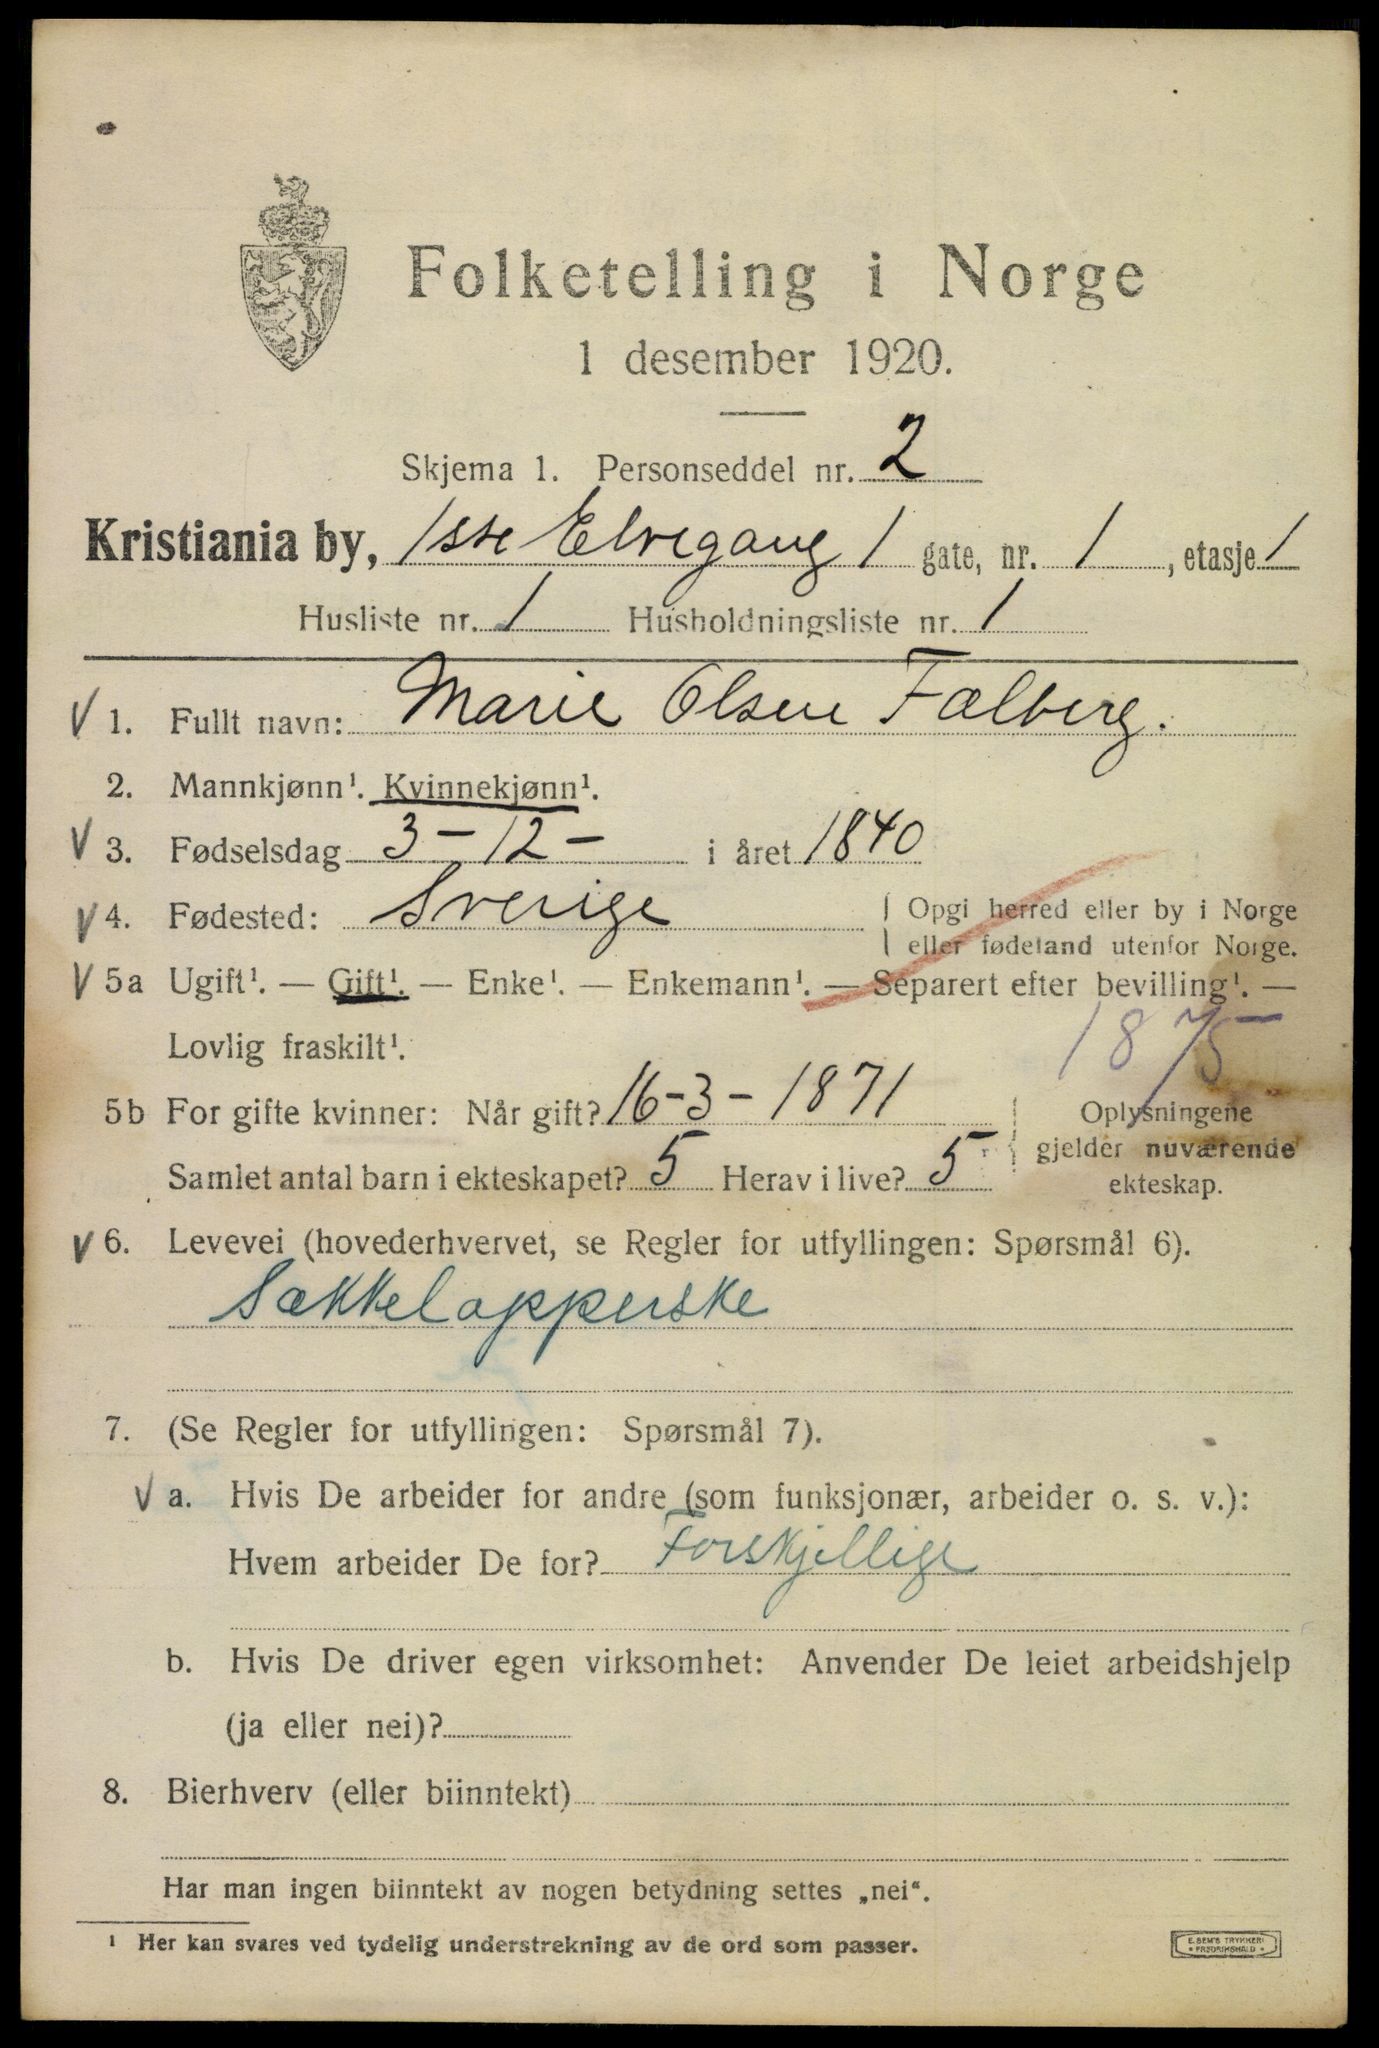 Folketelling i Norge
1 desember 1920.
Skjema 1. Personseddel nr. 2
Kristiania by, 1ste Elvegang 1 gate, nr. 1, etasje 1
Husliste nr. 1 Husholdningsliste nr. 1
V 1. Fullt navn: Marie Olsen Fælberg.
2. Mannkjønn¹. Kvinnekjønn¹.
V 3. Fødselsdag 3-12- i året 1840
V 4. Fødested: Sverige { Opgi herred eller by i Norge
{ eller fødeland utenfor Norge.
V 5a Ugift¹. — Gift¹. — Enke¹. — Enkemann¹. — Separert efter bevilling¹. —
Lovlig fraskilt¹.
1875
5b For gifte kvinner: Når gift? 16-3-1871 { Oplysningene
gjelder nuværende
Samlet antal barn i ekteskapet? 5 Herav i live? 5
ekteskap.
V 6. Levevei (hovederhvervet, se Regler for utfyllingen: Spørsmål 6).
Sækkelapperske
7. (Se Regler for utfyllingen: Spørsmål 7).
V a. Hvis De arbeider for andre (som funksjonær, arbeider o. s. v.):
Hvem arbeider De for? Forskjellige
b. Hvis De driver egen virksomhet: Anvender De leiet arbeidshjelp
(ja eller nei)?
8. Bierhverv (eller biinntekt)
Har man ingen biinntekt av nogen betydning settes „nei“.
¹ Her kan svares ved tydelig understrekning av de ord som passer.
E. SEM'S TRYKKERI
• FREDRIKSHALD •